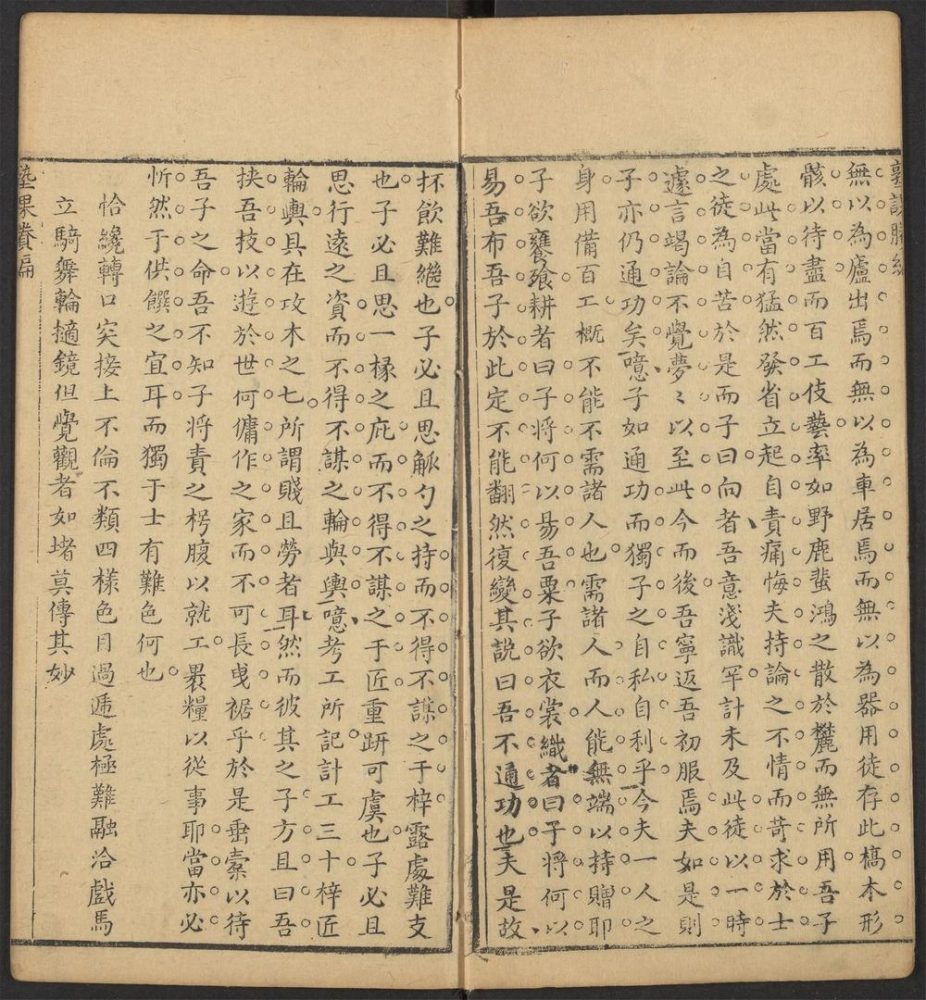 無以為廬出焉而無以為車居焉而無以為器用徒存此槁木形
骸以待盡而百工伎藝率如野鹿蜚鴻之散於麓而無所用吾子
處此當有猛然發省立起自責痛悔夫持論之不情而苛求於士
之徒為自苦於是而子曰向者吾意淺識罕計未及此徒以一時
遽言竭論不覺夢〻以至此今而後吾寧返吾初服焉夫如是則
子亦仍通功矣噫子如通功而獨子之自私自利乎今夫一人之
身用備百工概不能不需諸人也需諸人而人能無端以持贈耶
子欲饔飱耕者曰子將何以易吾粟子欲衣裳織者曰子將何以
易吾布吾子於此定不能翻然復變其説曰吾不通功也夫是故
抔飲難繼也子必且思觚勺之持而不得不謀之于梓露處難支
也子必且思一椽之庇而不得不謀之于匠重趼可虞也子必且
思行遠之資而不得不謀之輪與輿噫考工所記計工三十梓匠
輪輿具在攻木之七所謂賤且勞者耳然而彼其之子方且曰吾
挟吾技以遊於世何傭作之家而不可長曵裾乎於是垂橐以待
吾子之命吾不知子將責之枵腹以就工褁糧以從事耶當亦必
忻然于供饌之宜耳而獨于士有難色何也
恰纔轉口突接上不倫不類四樣色目過遞處極難融洽戲馬
立騎舞輪擿鏡但覺觀者如堵莫傳其妙
塾課賸編